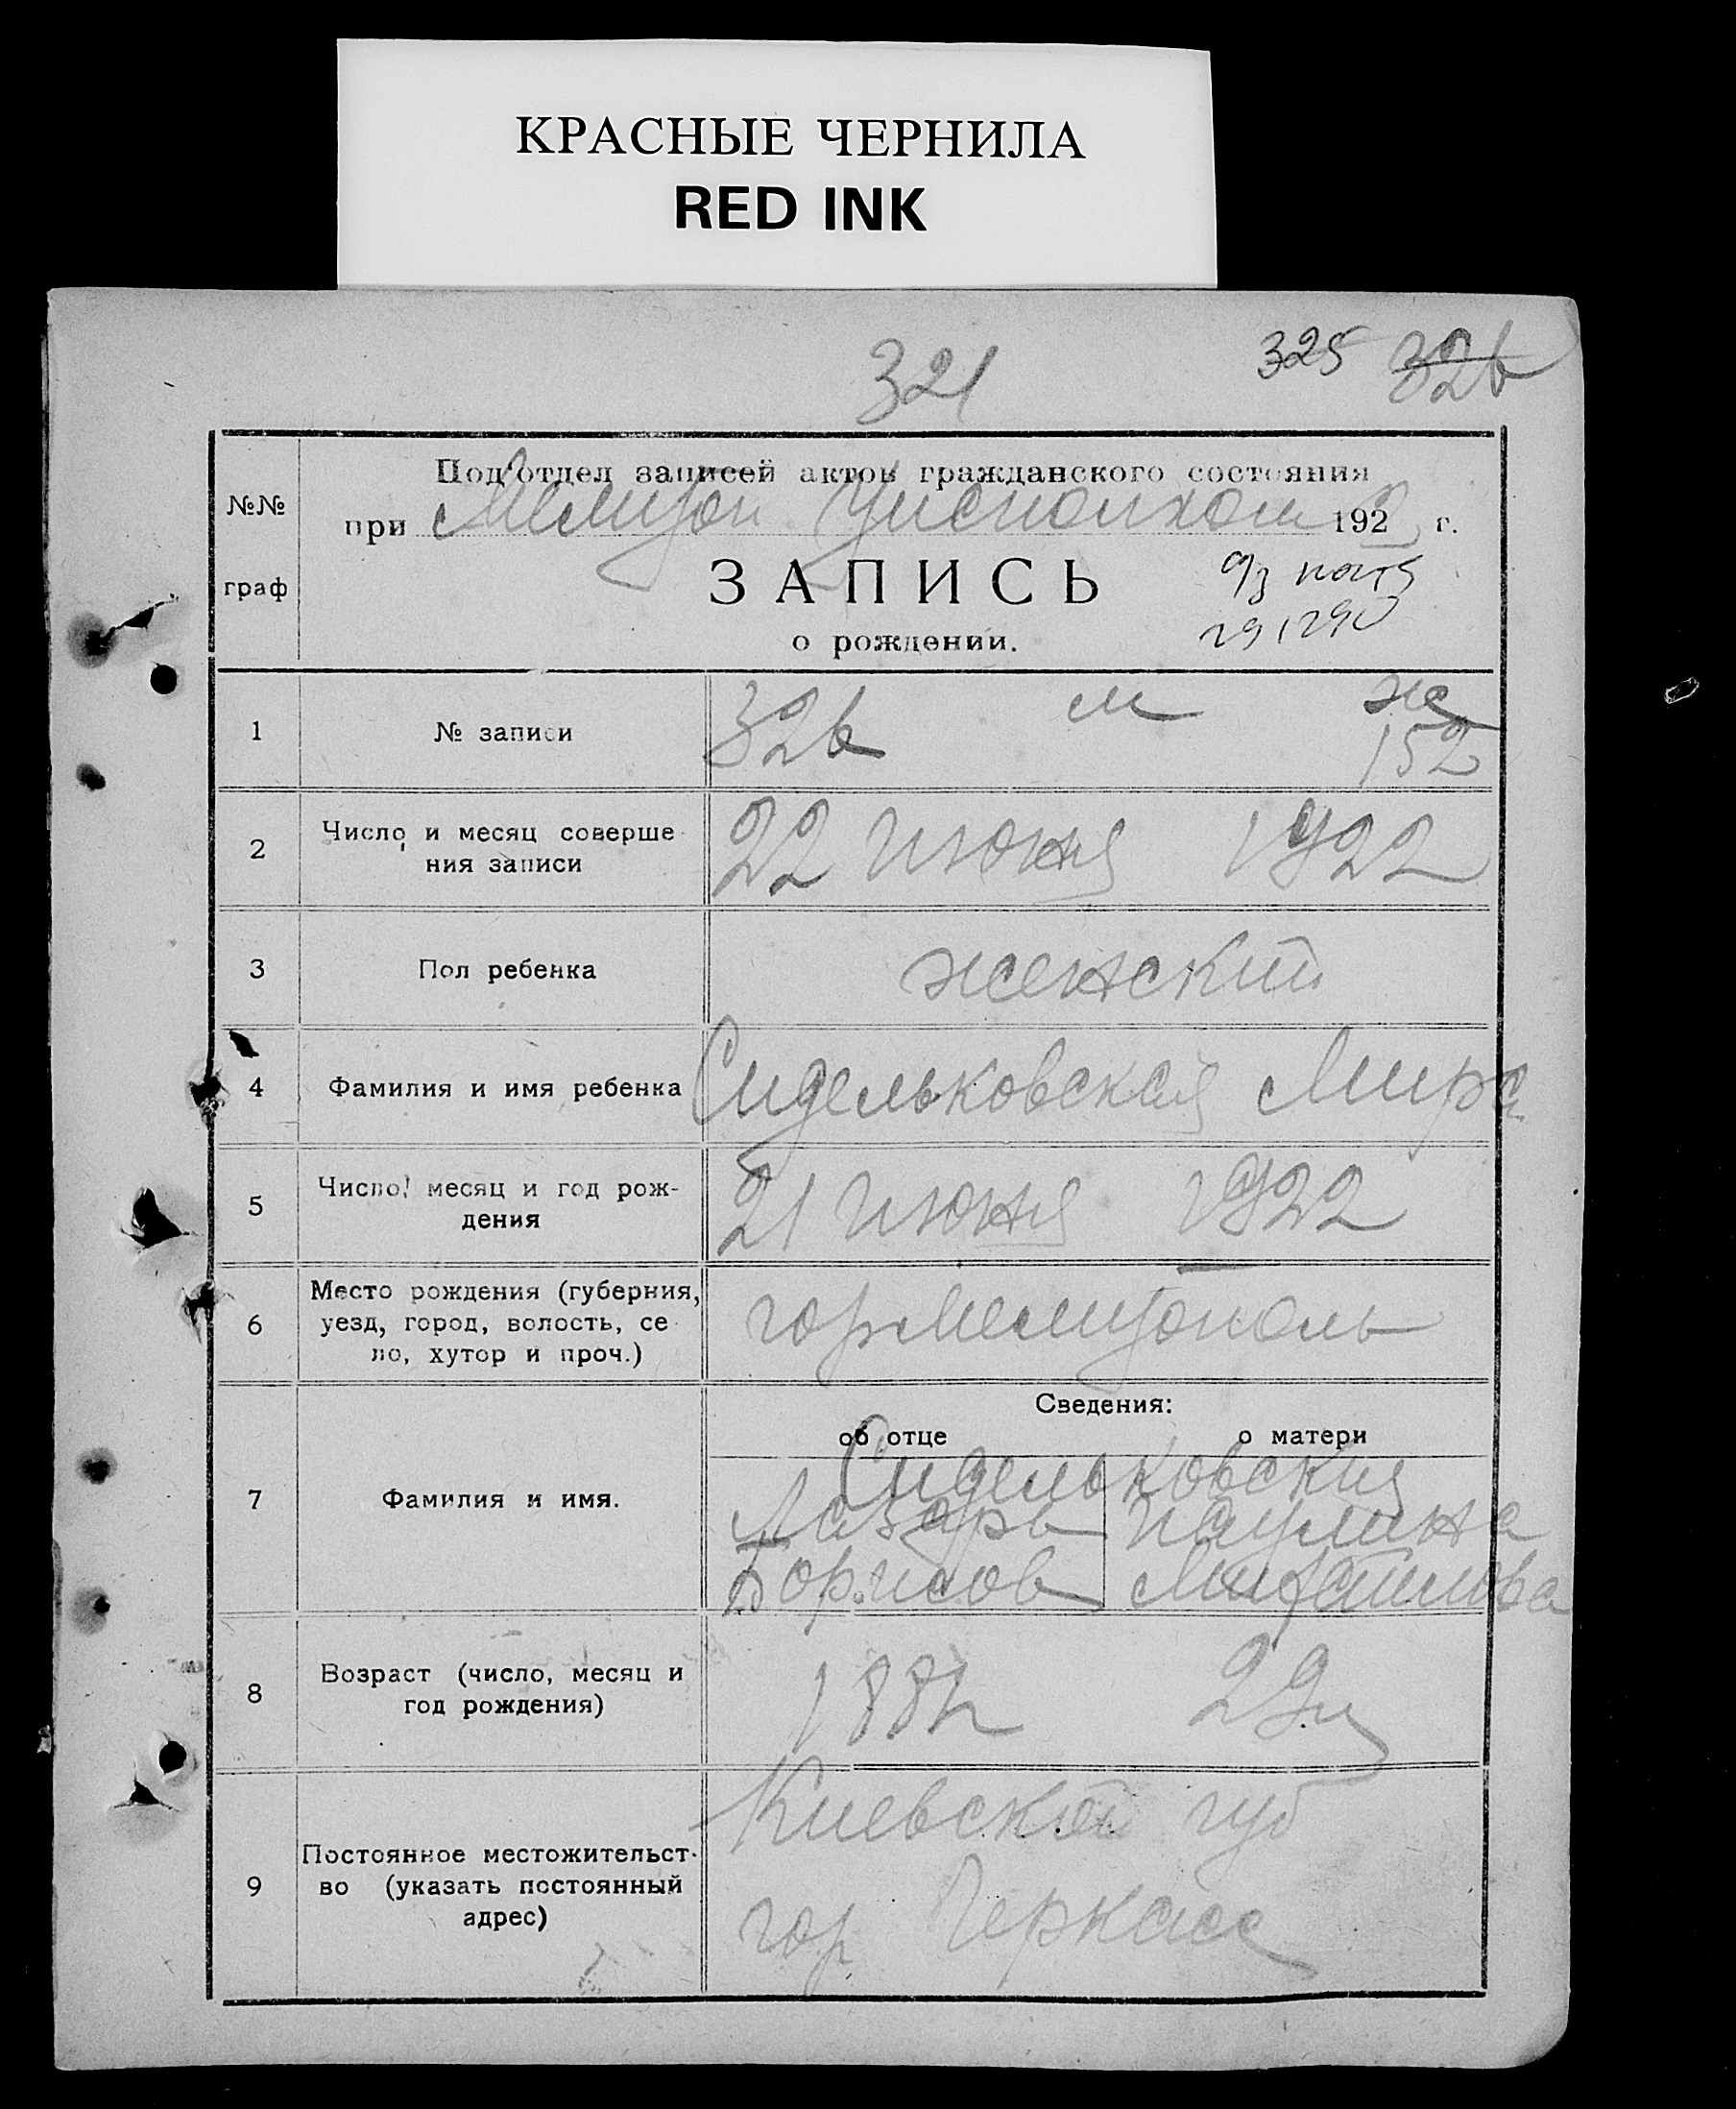 КРАСНЫЕ ЧЕРНИЛА
RED INK
325 326
321
№№
граф
Под'отдел записей актов гражданского состояния
при Мелитоп Уисполком 1922 г.
ЗАПИСЬ
о рождении.
1 № записи 326 м ж
152
2 Число и месяц соверше
ния записи
22 июня 1922
3 Пол ребенка женский
4 Фамилия и имя ребенка Сидельковская Мира
5 Число, месяц и год рож-
дения
21 июня 1922
6 Место рождения (губерния,
уезд, город, волость, се
ло, хутор и проч.)
гор Мелитополь
Сведения:
об отце о матери
7 Фамилия и имя.
Сидельковския
Лазарь Паулина
Борисов
8 Возраст (число, месяц и
год рождения)
29
9 Постоянное местожительст-
во (указать постоянный
адрес)
Киевской губ
гор Черкасс